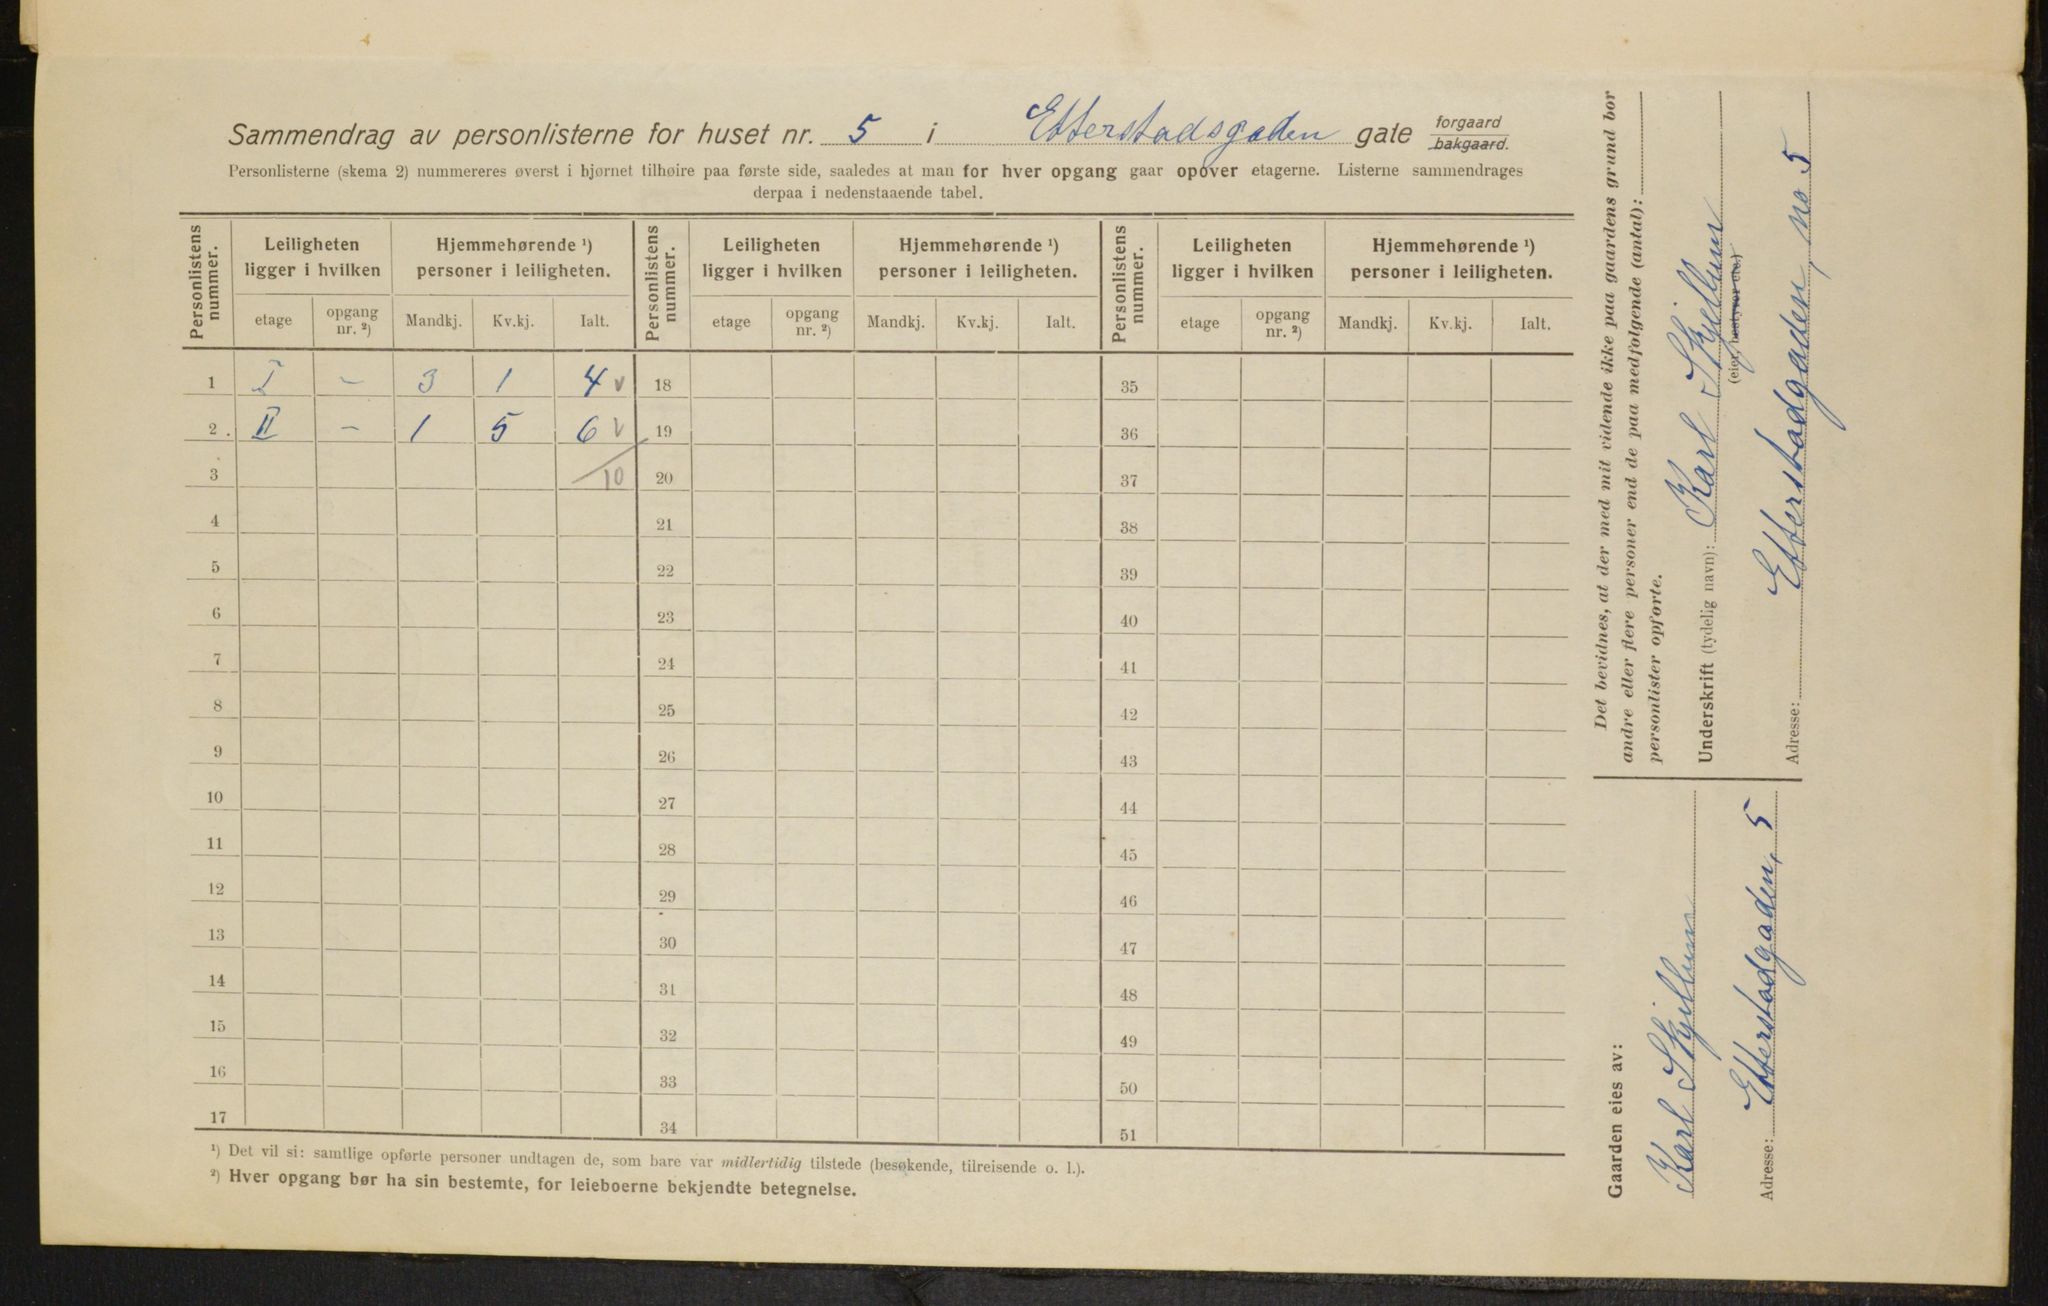 Sammendrag av personlisterne for huset nr. 5 i Etterstadsgaden gate forgaard bakgaard.
Personlisterne (skema 2) nummereres øverst i hjørnet tilhøire paa første side, saaledes at man for hver opgang gaar opover etagerne. Listerne sammendrages
derpaa i nedenstaaende tabel.
Personlistens nummer. Leiligheten ligger i hvilken Hjemmehørende ¹) personer i leiligheten. Personlistens nummer. Leiligheten ligger i hvilken Hjemmehørende ¹) personer i leiligheten. Personlistens nummer. Leiligheten ligger i hvilken Hjemmehørende ¹) personer i leiligheten.
etage opgang nr. ²) Mandkj. Kv.kj. Ialt. etage opgang nr. ²) Mandkj. Kv.kj. Ialt. etage opgang nr. ²) Mandkj. Kv.kj. Ialt.
1 I – 3 1 4 v 18 35
2. II – 1 5 6 v 19 36
3 10 20 37
4 21 38
5 22 39
6 23 40
7 24 41
8 25 42
9 26 43
10 27 44
11 28 45
12 29 46
13 30 47
14 31 48
15 32 49
16 33 50
17 34 51
¹) Det vil si: samtlige opførte personer undtagen de, som bare var midlertidig tilstede (besøkende, tilreisende o. l.).
²) Hver opgang bør ha sin bestemte, for leieboerne bekjendte betegnelse.
Det bevidnes, at der med mit vidende ikke paa gaardens grund bor
andre eller flere personer end de paa medfølgende (antal):
personlister opførte.
Underskrift (tydelig navn): Karl
(eier, bestyrer etc.)
Adresse: Etterstadgaden, no 5
Gaarden eies av:
Karl
Adresse: Etterstadgaden, 5